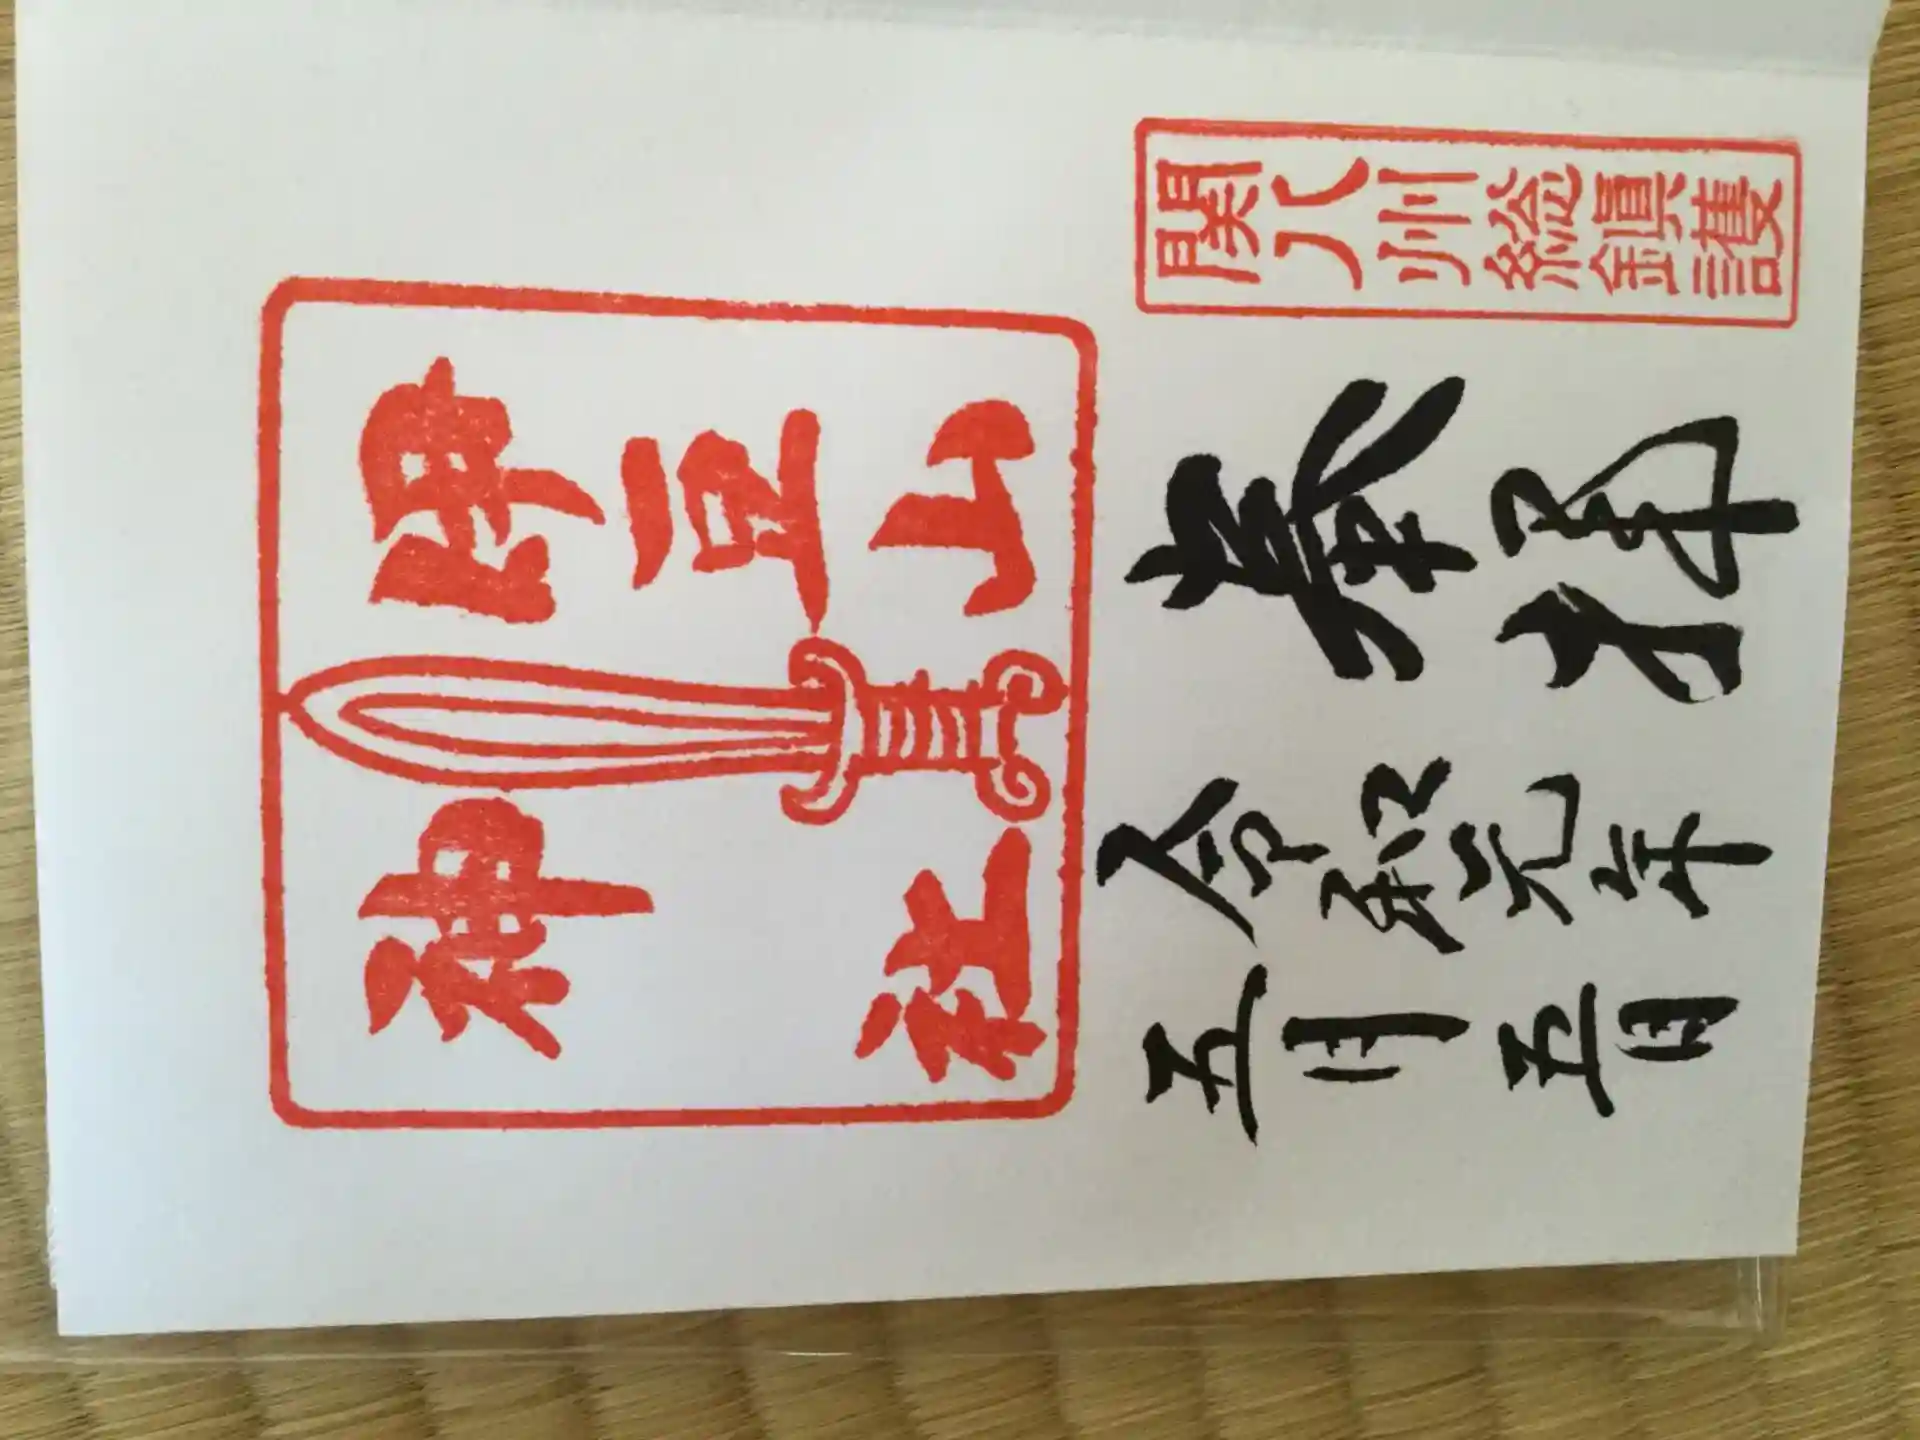 關八州總鎭護
奉拝
伊豆山
神社
令和元年
五月五日